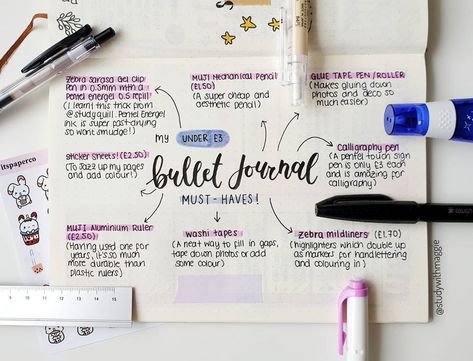 zebra sarasa Gel clip
Pen in 0.5mm with a
Pentel energel 0.5 refill
(I learnt this trick from
@studyquill. Pentel Energel
ink is super fast-drying
so won't smudge!)
MUJI Mechanical Pencil
(£1.50)
(A super cheap and
aesthetic pencil)
GLUE TAPE PEN/ROLLER
(Makes gluing down
photos and deco so
much easier)
my UNDER £3
bullet journal
MUST-HAVES!
sticker sheets! (£2.50)
(To jazz up my pages
and add colour!)
calligraphy pen
(A pentel touch sign
pen is only £3 each
and is amazing for
calligraphy)
MUJI Aluminium Ruler
(£2.50)
(Having used one for
years, it's so much
more durable than
plastic rulers)
washi tapes
(A neat way to fill in gaps,
tape down photos or add
some colour)
zebra mildliners (£1.70)
(highlighters which double up
as markers for handlettering
and colouring in)
itspaperco
1 2 3 4 5 6 7 8 9 10 11 12 13 14 15
touch
@studywithmaggie